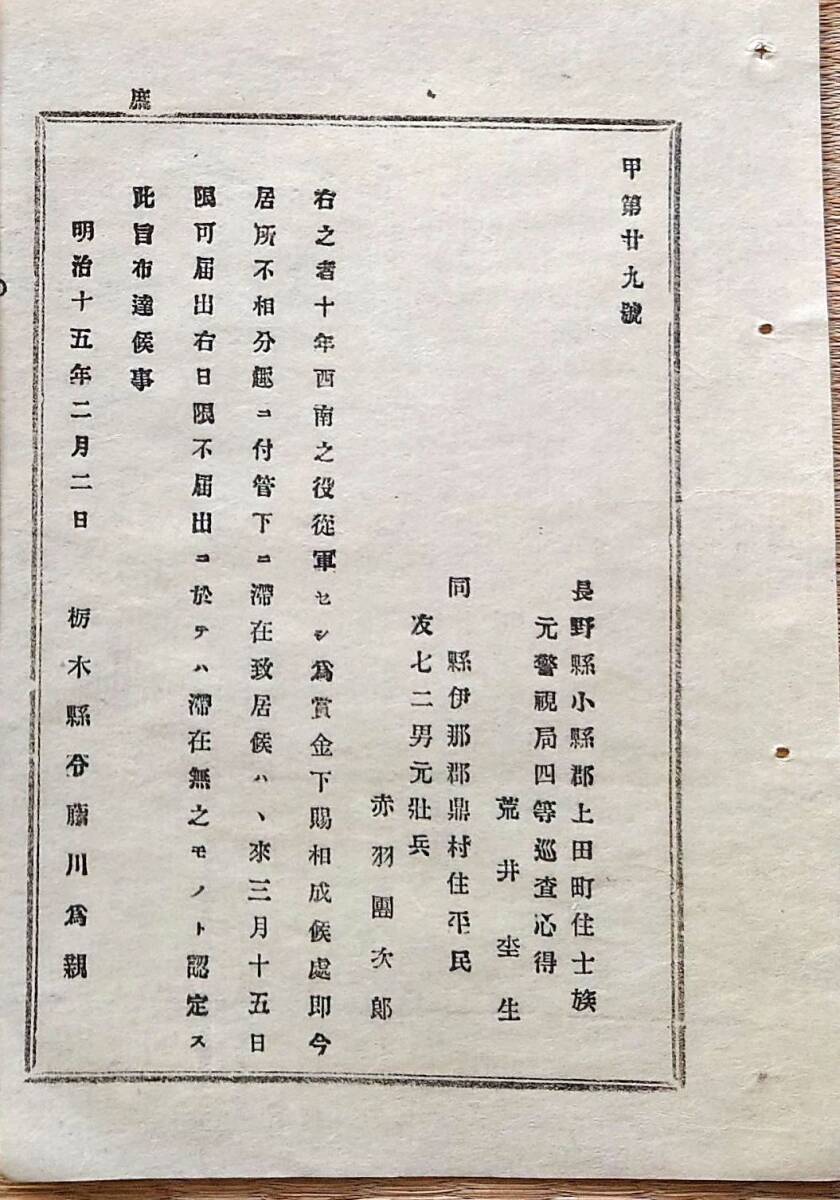 甲第廿九號
長野縣小縣郡上田町住士族
元警視局四等巡査心得
荒井坔生
同縣伊那郡鼎村住平民
友七二男元壯兵
赤羽團次郎
右之者十年西南之役從軍セシ爲賞金下賜相成候處即今
居所不相分趣ニ付管下ニ滯在致居候ハヽ來三月十五日
限可届出右日限不届出ニ於テハ滯在無之モノト認定ス
此旨布達候事
明治十五年二月二日 栃木縣令藤川爲親
庶